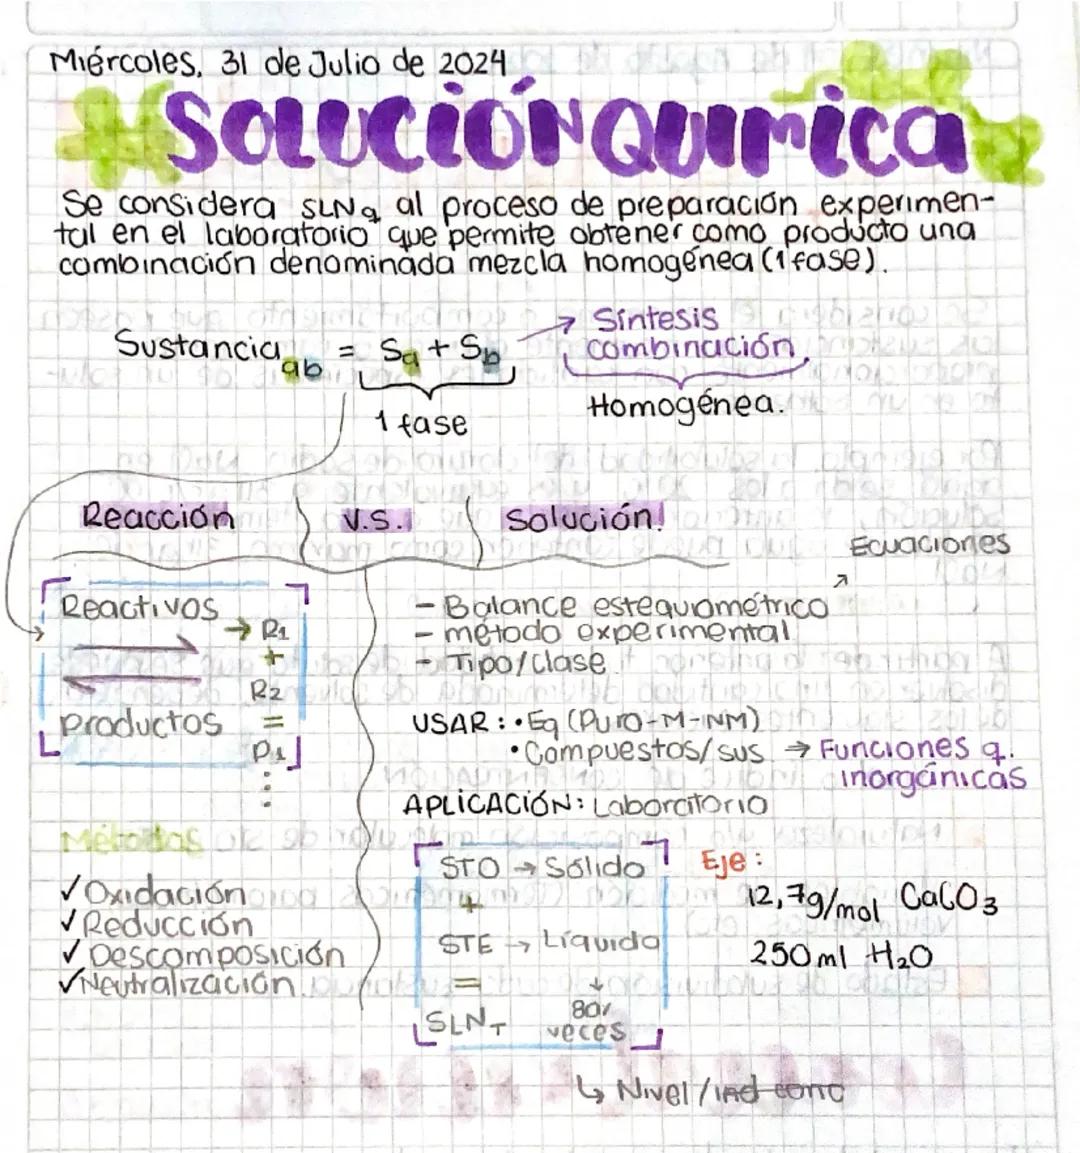 Miércoles, 31 de Julio de 2024
SOLUCIÓN QUIMICA
Se considera SLNq al proceso de preparación experimen-
tal en el laboratorio que permite obtener como producto una
combinación denominada mezcla homogénea (1 fase).
Sustancia ab = Sa + Sb → Síntesis
combinación.
1 fase
Homogénea.
Reacción V.S. Solución!
Reactivos
→ R1
+
R2
productos =
P1
⋮
Métodos
✓ Oxidación
✓ Reducción
✓ Descomposición
✓ Neutralización.
Ecuaciones
- Balance estequiométrico
- método experimental
- Tipo/clase
USAR: • Eq (Puro-M-NM)
• Compuestos/sus → Funciones q.
inorgánicas
APLICACIÓN: Laboratorio
STO → Sólido
+
STE → Líquido
=
↓
SLNT
veces
Eje:
12,7g/mol CaCO3
250ml H2O
↳ Nivel/